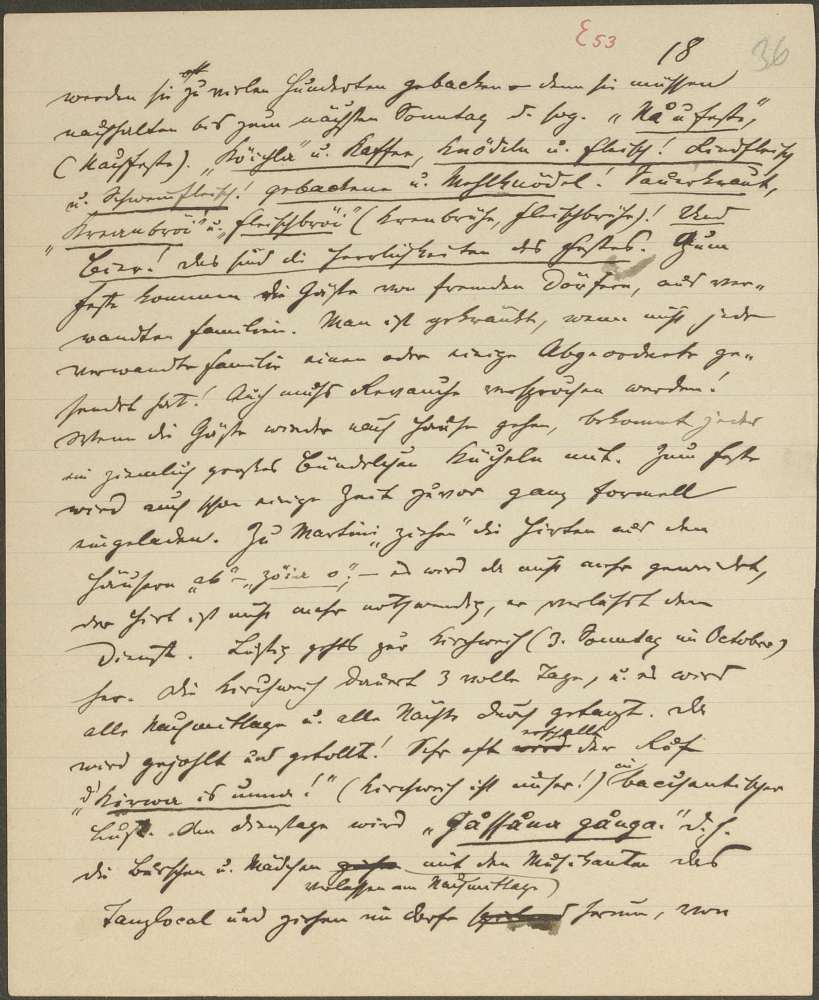 E 53
18
36
oft
werden sie zu vielen Hunderten gebacken – denn sie müssen
nachhalten bis zum nächsten Sonntag d. sog. „Nåufeste,"
(Nachfeste). „Köichla" u. Kaffee, Knödeln u. Fleisch! Rindfleisch
u. Schweinfleisch! gebackene u. Mehlknödel! Sauerkraut,
„Kreanbröi" u. „fleischbröi" (Krenbrühe, Fleischbrühe)! Und
Bier! das sind die Herrlichkeiten des Festes. Zum
Feste kommen die Gäste von fremden Dörfern, aus ver-
wandten Familien. Man ist gekränkt, wenn nicht jede
verwandte Familie einen oder einige Abgeordnete ge-
sendet hat! Auch muß Revanche versprochen werden!
Wenn die Gäste wieder nach Hause gehen, bekommt jeder
ein ziemlich großes Bündelchen Kücheln mit. Zum Feste
wird auch schon einige Zeit zuvor ganz formell
eingeladen. Zu Martini „ziehen" die Hirten aus den
Häusern „ab" – „zöia o", – es wird da nicht mehr geweidet,
der Hirt ist nicht mehr nothwendig, er verläßt den
Dienst. Lustig gehts zur Kirchweih (3. Sonntag im October)
her. Die Kirchweih dauert 3 volle Tage, u. es wird
alle Nachmittage u. alle Nächte durch getanzt. Da
wird gejohlt und getollt! Sehr oft erschallt der Ruf
„d' Kirwa is unna!" (Kirchweih ist unser!) in bacchantischer
Lust. Am Dienstage wird „Gåssåna gånga." d. h.
die Burschen u. Mädchen mit den Musikanten das
verlassen am Nachmittage
Tanzlocal und ziehen im Dorfe herum, von